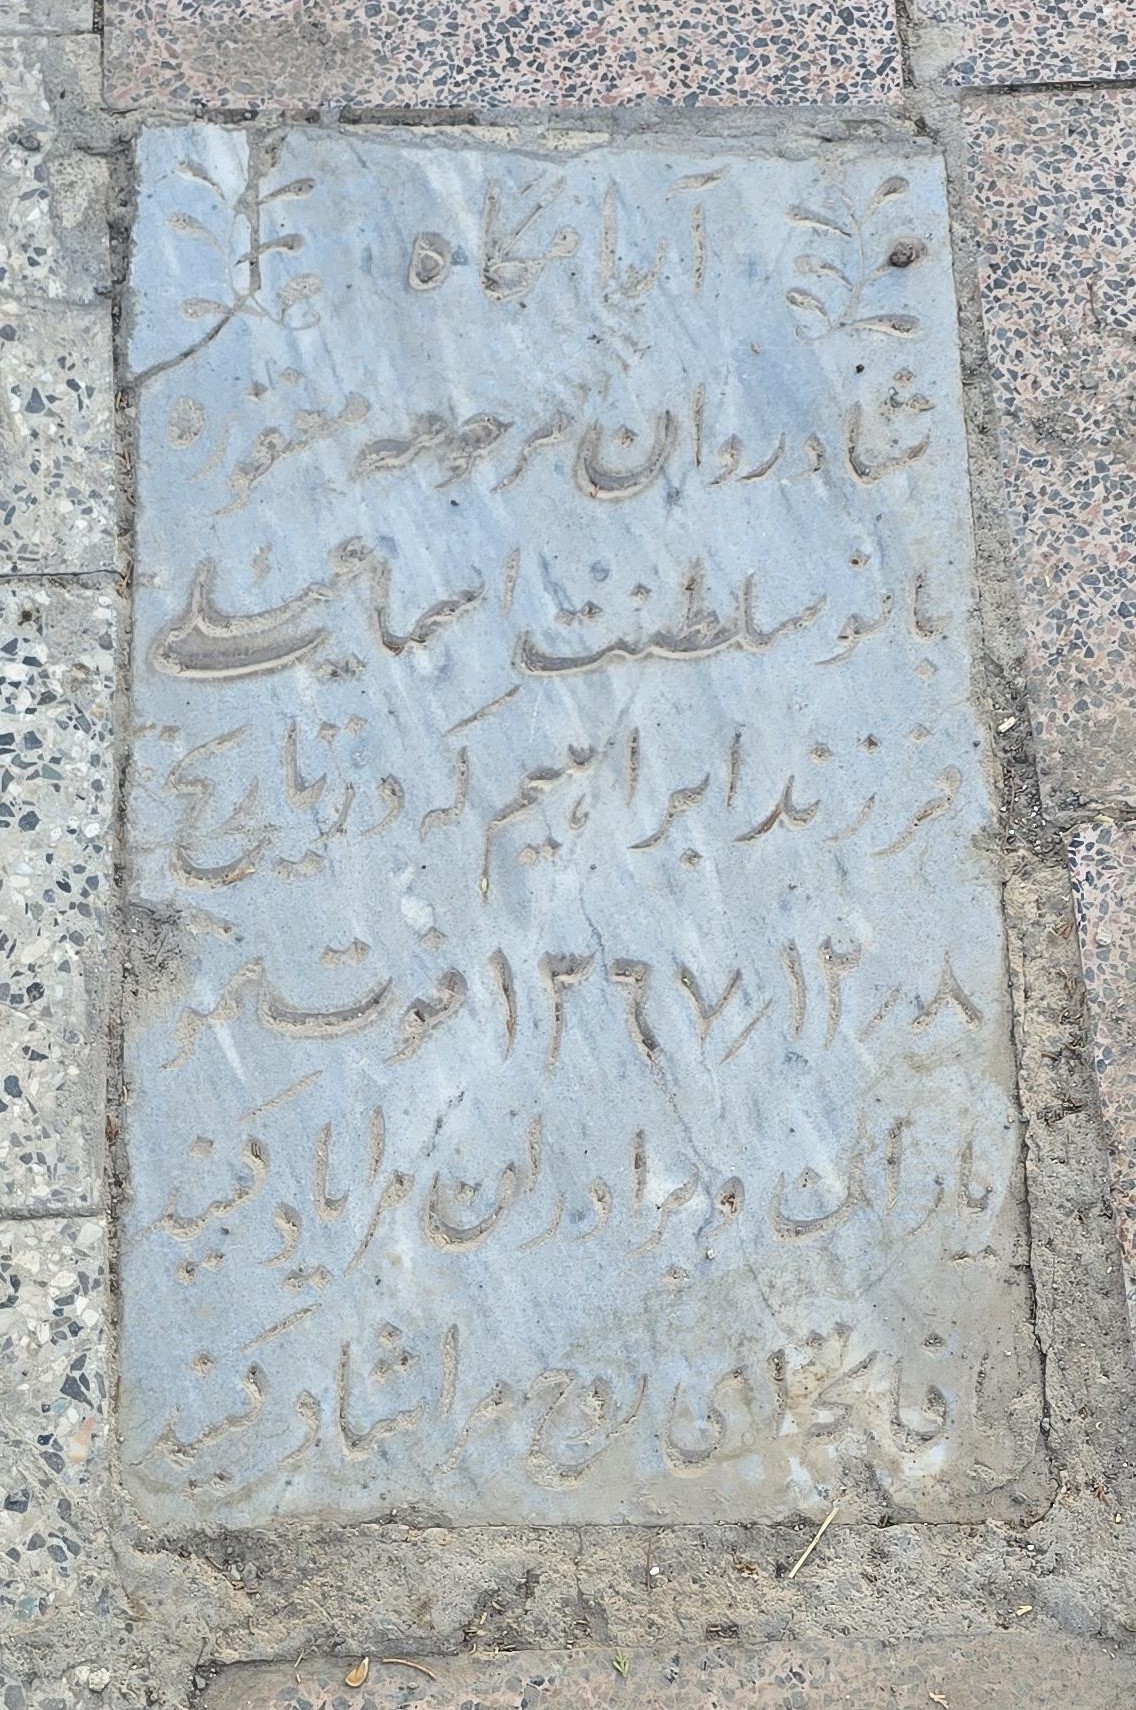 آرامگاه
شادروان مرحومه مغفوره
بانو سلطنت اسماعیلی
فرزند ابراهیم که در تاریخ
۸ر۱۲ر۱۳۶۷ فوت نمود
یاران و برادران مرا یاد کنید
فاتحه‌ای روح مرا شاد کنید